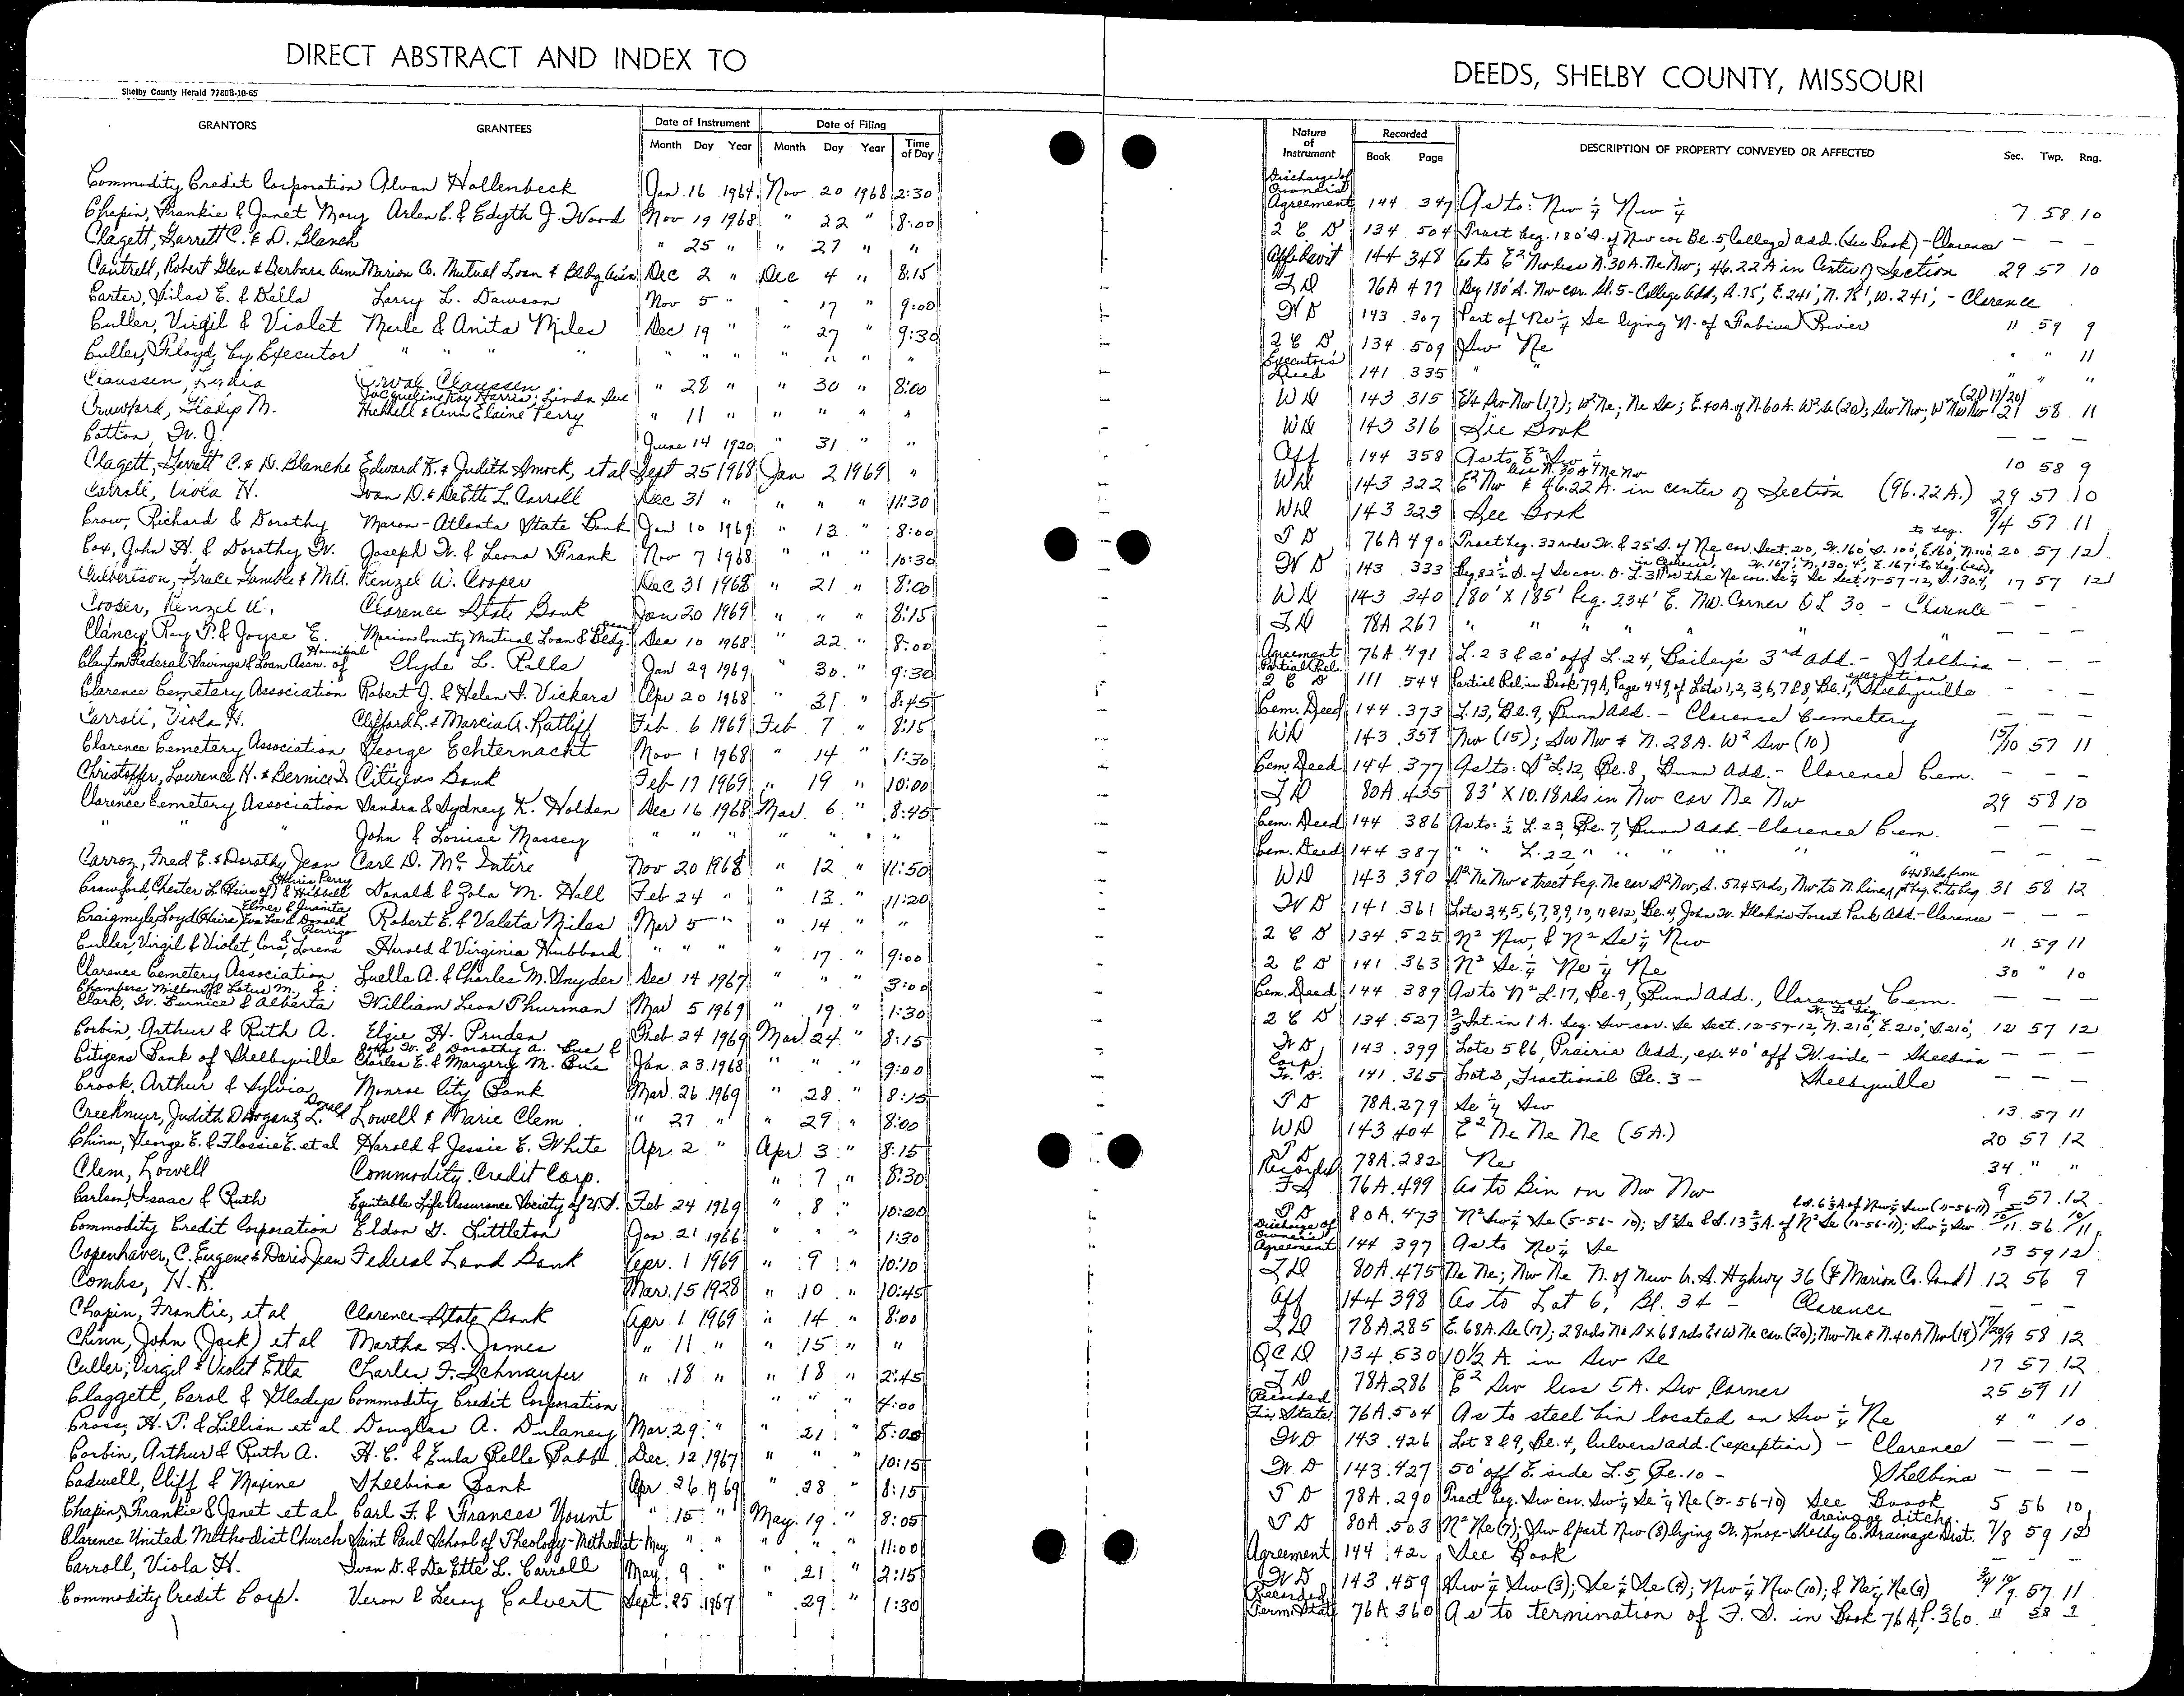 DIRECT ABSTRACT AND INDEX TO
Shelby County Herald 7780B-10-65
GRANTORS GRANTEES Date of Instrument Date of Filing
Month Day Year Month Day Year Time of Day
Commodity Credit Corporation Alvan Hollenbeck Jan. 16 1964 Nov. 20 1968 2:30
Chapin, Frankie & Janet Mary Arlen E. & Edyth J. Wood Nov 19 1968 " 22 " 8:00
Clagett, Garrett C. & D. Blanch " 25 " " 27 " "
Cantrell, Robert Glen & Barbara Ann Marion Co. Mutual Loan & Bldg Assn Dec 2 " Dec 4 " 8:15
Carter, Silas E. & Della Larry L. Dawson Nov 5 " " 17 " 9:00
Culler, Virgil & Violet Merle & Anita Miles Dec 19 " " 27 " 9:30
Culler, Floyd, by Executor " " " " " " " " " "
Claussen, Lydia Orval Claussen " 28 " " 30 " 8:00
Crawford, Gladys M. Jacqueline Kay Harris; Linda Sue
Hibbell & Ann Elaine Perry " 11 " " " " "
Cotton, W. J. June 14 1920 " 31 " "
Clagett, Garrett C. & D. Blanche Edward K. & Judith Smock, et al Sept 25 1968 Jan. 2 1969 "
Carroll, Viola H. Ivan D. & DeEtte L. Carroll Dec 31 " " " " 11:30
Crow, Richard & Dorothy Macon-Atlanta State Bank Jan 10 1969 " 13 " 8:00
Cox, John H. & Dorothy W. Joseph W. & Leona Frank Nov 7 1968 " " " 10:30
Culbertson, Grace Gamble & M.A. Renzel W. Cooper Dec 31 1968 " 21 " 8:00
Cooper, Renzel W. Clarence State Bank Jan 20 1969 " " " 8:15
Clancy, Ray P. & Joyce E. Marion County Mutual Loan & Bldg. Assn Dec 10 1968 " 22 " 8:00
Clayton Federal Savings & Loan Assn. of Hannibal Clyde L. Ralls Jan 29 1969 " 30 " 9:30
Clarence Cemetery Association Robert J. & Helen I. Vickers Apr 20 1968 " 31 " 8:45
Carroll, Viola H. Clifford L. & Marcia A. Ratliff Feb. 6 1969 Feb 7 " 8:15
Clarence Cemetery Association George Echternacht Nov 1 1968 " 14 " 1:30
Christoffer, Laurence H. & Bernice D. Citizens Bank Feb 17 1969 " 19 " 10:00
Clarence Cemetery Association Sandra & Sydney K. Holden Dec 16 1968 Mar. 6 " 8:45
" " " John & Louise Massey " " " " " " "
Carroz, Fred E. & Dorothy Jean Carl D. McIntire Nov 20 1968 " 12 " 11:50
Crawford, Chester L. (Heirs of) (Harris, Perry & Hibbell) Donald & Zola M. Hall Feb 24 " " 13 " 11:20
Craigmyle, Loyd, Heirs Elmer & Juanita Iva Lee & Donald & Perrigo Robert E. & Valeta Miles Mar 5 " " 14 " "
Culler, Virgil & Violet, Cora, Lorena Harold & Virginia Hubbard " " " " 17 " 9:00
Clarence Cemetery Association Luella A. & Charles M. Snyder Dec 14 1967 " " " 3:00
Chambers, Milton & Lotus M., &
Clark, W. Burnice & Alberta William Leon Thurman Mar 5 1969 " 19 " 1:30
Corbin, Arthur & Ruth A. Elzie H. Pruden Feb 24 1969 Mar. 24 " 8:15
Citizens Bank of Shelbyville John W. & Dorothy A. Bue &
Charles E. & Margery M. Bue Jan. 23 1968 " " " 9:00
Crook, Arthur & Sylvia Monroe City Bank Mar. 26 1969 " 28 " 8:15
Creekmur, Judith D. Hogan & Donald L. Lowell & Marie Clem " 27 " " 29 " 8:00
Chinn, George E. & Flossie E. et al Harold & Jessie E. White Apr. 2 " Apr. 3 " 8:15
Clem, Lowell Commodity Credit Corp. " 7 " 8:30
Carlson, Isaac & Ruth Equitable Life Assurance Society of U.S. Feb 24 1969 " 8 " 10:20
Commodity Credit Corporation Eldon G. Littleton Jan. 21 1966 " " " 1:30
Copenhaver, C. Eugene & Doris Jean Federal Land Bank Apr. 1 1969 " 9 " 10:10
Combs, H. R. Mar. 15 1928 " 10 " 10:45
Chapin, Frankie, et al Clarence State Bank Apr. 1 1969 " 14 " 8:00
Chinn, John (Jack) et al Martha S. James " 11 " " 15 " "
Culler, Virgil & Violet Etta Charles F. Schnaufer " 18 " " 18 " 2:45
Claggett, Carol & Gladys Commodity Credit Corporation " " " 4:00
Cross, H. P. & Lillian et al Douglas A. Dulaney Mar. 29 " " 21 " 8:00
Corbin, Arthur & Ruth A. H. C. & Eula Belle Babb Dec. 12 1967 " " " 10:15
Cadwell, Cliff & Maxine Shelbina Bank Apr 26 1969 " 28 " 8:15
Chapin, Frankie & Janet et al Carl F. & Frances Yount " 15 " May 19 " 8:05
Clarence United Methodist Church Saint Paul School of Theology-Methodist May " " " " " 11:00
Carroll, Viola H. Ivan D. & De Ette L. Carroll May 9 " " 21 " 2:15
Commodity Credit Corp. Veron & Leroy Calvert Sept. 25 1967 " 29 " 1:30
DEEDS, SHELBY COUNTY, MISSOURI
Nature of Instrument Recorded DESCRIPTION OF PROPERTY CONVEYED OR AFFECTED Sec. Twp. Rng.
Book Page
Discharge of Owner's Agreement 144 347 As to: Nw ¼ Nw ¼ 7 58 10
Q C D 134 504 Tract beg. 180' S. of Nw cor Bl. 5 (College) add. (See Book) - Clarence — — —
Affidavit 144 348 As to E² Nw less N. 30 A. Ne Nw; 46.22 A in Center of Section 29 57 10
T D 76A 477 Beg 180' S. Nw cor. Bl. 5 - College Add, S. 75', E. 241', N. 75', W. 241', - Clarence
W D 143 307 Part of Ne ¼ Se lying N. of Fabius River 11 59 9
Q C D 134 509 Sw Ne " " 11
Executor's Deed 141 335 " " " " "
WD 143 315 E¼ Sw Nw (17); W² Ne; Ne Se; E. 40A. of N. 60 A. W² Se (20); Sw Nw; W² Nw Nw (21) 17/20/21 58 11
WD 143 316 See Book — — —
Aff 144 358 As to E² Sw ¼ 10 58 9
WD 143 322 E² Nw less N. 30 A Ne Nw & 46.22 A. in center of Section (96.22 A.) 29 57 10
WD 143 323 See Book 9/4 57 11
T D 76A 490 Tract beg. 32 rods W. & 25' S. of Ne cor. Sect. 20, W. 160', S. 100', E. 160', N. 100 to beg. 20 57 12
W D 143 333 17 57 12
WD 143 340 180' X 185' beg. 234' E. Nw. Corner O L 30 - Clarence — — —
T D 78A 267 " " " " " " — — —
Agreement 76A 491 L. 23 & 20' off L. 24, Bailey's 3rd add. - Shelbina — — —
Partial Rel. Q C D 111 544 Partial Rel. in Book 79A, Page 449, of Lots 1, 2, 3, 6, 7 & 8, Bl. 1, exception Shelbyville — — —
Cem. Deed 144 373 L. 13, Bl. 9, Bunn Add. - Clarence Cemetery — — —
WD 143 359 Nw (15); Sw Nw & N. 28 A. W² Sw (10) 15/10 57 11
Cem. Deed 144 377 As to: S² L. 12, Bl. 8, Bunn Add. - Clarence Cem. — — —
T D 80A 435 83' X 10.18 rds in Nw cor Ne Nw 29 58 10
Cem. Deed 144 386 As to: ½ L. 23, Bl. 7, Bunn Add. - Clarence Cem. — — —
Cem. Deed 144 387 " " L. 22 " " " " " — — —
WD 143 390 31 58 12
W D 141 361 Lots 3, 4, 5, 6, 7, 8, 9, 10, 11 & 12, Bl. 4, John W. Glahn's Forest Park Add. - Clarence — — —
Q C D 134 525 N² Nw, & N² Se ¼ Nw 11 59 11
Q C D 141 363 N² Se ¼ Ne ¼ Ne 30 " 10
Cem. Deed 144 389 As to N² L. 17, Bl. 9, Bunn Add., Clarence Cem. — — —
Q C D 134 527 Int. in 1 A. beg. Sw cor. Se Sect. 12-57-12, N. 210', E. 210', S. 210', W. to beg. 12 57 12
W D 143 399 Lots 5 & 6, Prairie Add., ex. 40' off W. side - Shelbina — — —
Corp. W. D. 141 365 Lot 2, Fractional Bl. 3 - Shelbyville — — —
T D 78A 279 Se ¼ Sw 13 57 11
WD 143 404 E² Ne Ne Ne (5 A.) 20 57 12
T D 78A 282 Ne 34 " "
Recorded F S 76A 499 As to Bin on Nw Nw 9 57 12
T D 80A 473 N² Sw ¼ Se (5-56-10); S² Se & S. 13 ⅔ A. of N² Se (10-56-11); Sw ¼ Sw 56
Discharge of Owner's Agreement 144 397 As to Nw ¼ Se 13 59 12
T D 80A 475 Ne Ne; Nw Ne N. of New U. S. Highwy 36 (& Marion Co. Land) 12 56 9
Aff 144 398 As to Lot 6, Bl. 34 - Clarence — — —
T D 78A 285 E. 68 A. Se (17); 28 rds N & S x 68 rds E & W Ne cor. (20); Nw Ne & N. 40 A Nw (19) 17/20/19 58 12
Q C D 134 530 10½ A. in Sw Se 17 57 12
T D 78A 286 E² Sw less 5 A. Sw Corner 25 59 11
Recorded Fin. State 76A 504 As to steel bin located on Sw ¼ Ne 4 " 10
W D 143 426 Lot 8 & 9, Bl. 4, Culvers add. (exception) - Clarence — — —
W. D 143 427 50' off E. side L. 5, Bl. 10 - Shelbina — — —
T D 78A 290 Tract beg. Sw cor. Sw ¼ Se ¼ Ne (5-56-10) See Book 5 56 10
T D 80A 503 N² Ne (7); Sw & part Nw (8) lying W. Knox-Shelby Co. Drainage Dist. drainage ditch 7/8 59 12
Agreement 144 42 See Book — — —
W D 143 459 Sw ¼ Sw (3); Se ¼ Se (4); Nw ¼ Nw (10); & Ne ¼ Ne (9) 3/4 10/9 57 11
Recorded Term. State 76A 360 As to termination of F. S. in Book 76A, P. 360. 11 58 9